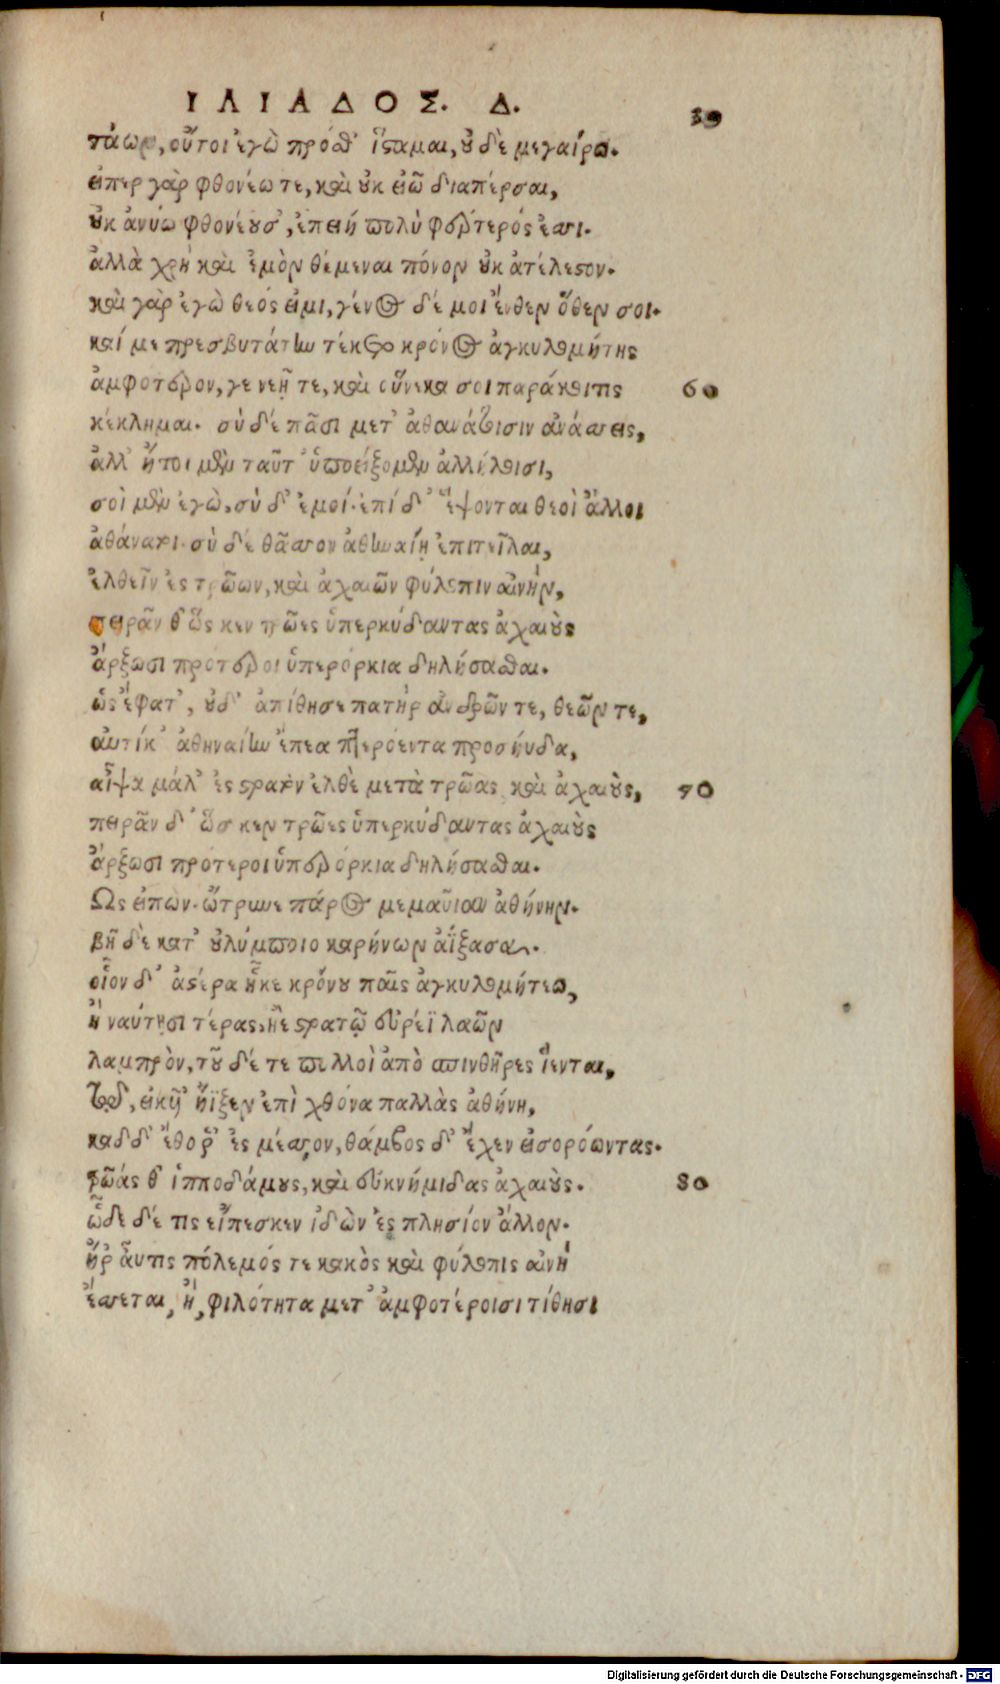 ΙΛΙΑΔΟΣ. Δ.
39
τάων, οὔτοι ἐγὼ πρόσθ' ἵσταμαι, οὐδὲ μεγαίρω.
εἴπερ γὰρ φθονέω τε, καὶ οὐκ εἰῶ διαπέρσαι,
οὐκ ἀνύω φθονέουσ', ἐπειὴ πολὺ φέρτερός ἐσσι.
ἀλλὰ χρὴ καὶ ἐμὸν θέμεναι πόνον οὐκ ἀτέλεστον.
καὶ γὰρ ἐγὼ θεός εἰμι, γένος δέ μοι ἔνθεν ὅθεν σοι.
καί με πρεσβυτάτην τέκετο κρόνος ἀγκυλομήτης
ἀμφότερον, γενεῇ τε, καὶ οὕνεκα σοι παράκοιτις 60
κέκλημαι. σὺ δέ πᾶσι μετ' ἀθανάτοισιν ἀνάσσεις,
ἀλλ' ἤτοι μὲν ταῦτ' ὑποείξομεν ἀλλήλοισι,
σοὶ μὲν ἐγὼ, σὺ δ' ἐμοί. ἐπί δ' ἕψονται θεοὶ ἄλλοι
ἀθάνατοι. σὺ δέ θᾶσσον ἀθηναίῃ ἐπιτεῖλαι,
ἐλθεῖν ἐς τρώων, καὶ ἀχαιῶν φύλοπιν αἰνὴν,
πειρᾶν θ' ὥς κεν τρῶες ὑπερκύδαντας ἀχαιοὺς
ἄρξωσι πρότεροι ὑπερόρκια δηλήσασθαι.
ὣς ἔφατ', οὐδ' ἀπίθησε πατὴρ ἀνδρῶν τε, θεῶν τε,
αὐτίκ' ἀθηναίην ἔπεα πτερόεντα προσηύδα,
αἶψα μάλ' ἐς στρατὸν ἐλθὲ μετὰ τρῶας καὶ ἀχαιοὺς, 70
πειρᾶν δ' ὥσ κεν τρῶες ὑπερκύδαντας ἀχαιοὺς
ἄρξωσι πρότεροι ὑπερόρκια δηλήσασθαι.
Ὣς εἰπὼν. ὤτρυνε πάρος μεμαυῖαν ἀθήνην.
βῆ δὲ κατ' οὐλύμποιο καρήνων ἀΐξασα.
οἷον δ' ἀστέρα ἧκε κρόνου παῖς ἀγκυλομήτεω,
ἢ ναύτῃσι τέρας, ἠὲ στρατῷ εὐρέϊ λαῶν
λαμπρὸν, τοῦ δέ τε πολλοὶ ἀπὸ σπινθῆρες ἵενται,
τῷ, εἰκυῖ' ἤϊξεν ἐπὶ χθόνα παλλὰς ἀθήνη,
καδδ' ἔθορ' ἐς μέσσον, θάμβος δ' ἔχεν εἰσορόωντας.
τρῶάς θ' ἱπποδάμους, καὶ εὐκνήμιδας ἀχαιούς. 80
ὧδε δέ τις εἴπεσκεν ἰδὼν ἐς πλησίον ἄλλον.
ἤρ' αὖτις πόλεμός τε κακὸς καὶ φύλοπις αἰνὴ
ἔσσεται, ἢ, φιλότητα μετ' ἀμφοτέροισι τίθησι
Digitalisierung gefördert durch die Deutsche Forschungsgemeinschaft - DFG